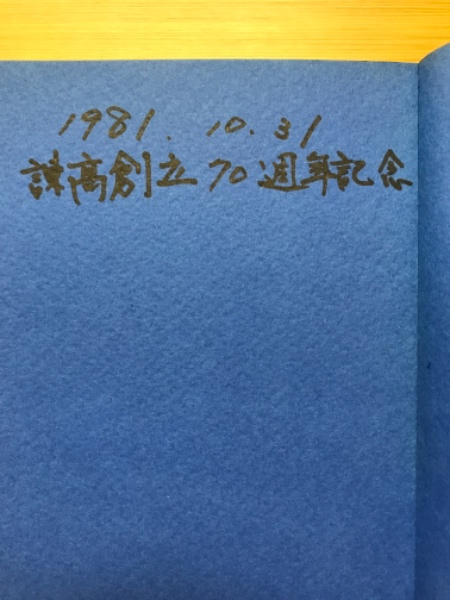 1981. 10. 31
諫高創立70週年記念